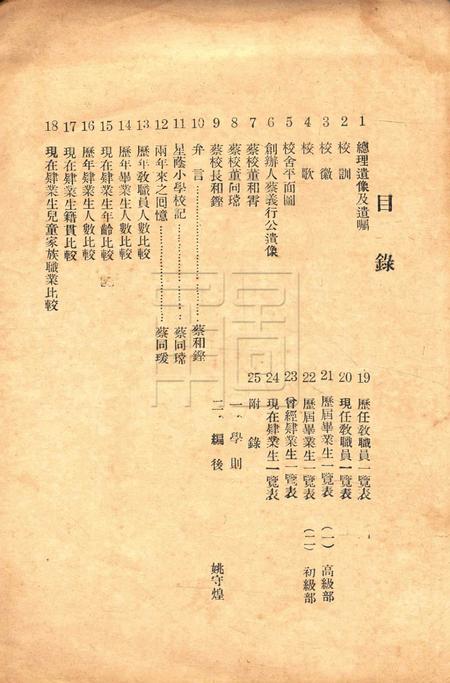 目錄
1 總理遺像及遺囑
2 校訓
3 校徽
4 校歌
5 校舍平面圖
6 創辦人蔡義行公遺像
7 蔡校董和霽
8 蔡校董同瑺
9 蔡校長和鏗
10 弁言…………………………蔡和鏗
11 星蔭小學校記……………蔡同瑺
12 兩年來之回憶……………蔡同瑗
13 歷年教職員人數比較
14 歷年畢業生人數比較
15 現在肄業生年齡比較
16 歷年肄業生人數比較
17 現在肄業生籍貫比較
18 現在肄業生兒童家族職業比較
19 歷任教職員一覽表
20 現任教職員一覽表
21 歷屆畢業生一覽表 (一) 高級部
22 歷屆畢業生一覽表 (二) 初級部
23 曾經肄業生一覽表
24 現在肄業生一覽表
25 附錄
一．學則
二．編後 姚守煌